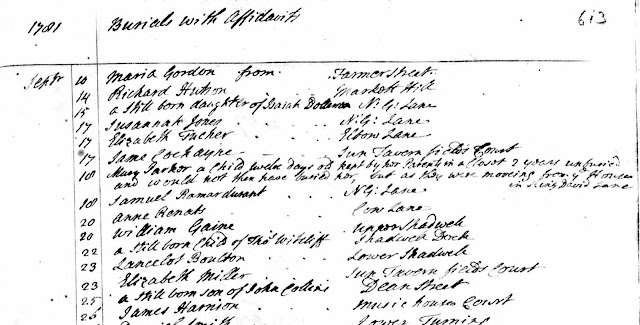 1781 Burials with Affidavits 613
Septr 10 Maria Gordon from Farmer Street
14 Richard Hutson Markett Hill
15 a still born daughter of Isaiah N: G: Lane
17 Susannah Jones N: G: Lane
17 Elizabeth Tucker Elbow Lane
17 Jame Cockayne Sun Tavern fields Court
18 Mary Parker a Child twelve days old kept by her Parents in a 2 years unburied
and would not then have buried her, but as they were moving from House
in King David Lane
18 Samuel N: G: Lane
20 Anne Renats Cow Lane
20 William Gaine Upper Shadwell
22 a still born Child of Thos Witcliff Shadwell Dock
23 Lancelot Boulton Lower Shadwell
23 Elizabeth Miller Sun Tavern fields Court
25 a still born son of John Collins Dean Street
26 James Harrison Music house Court
Smith Lower Turning